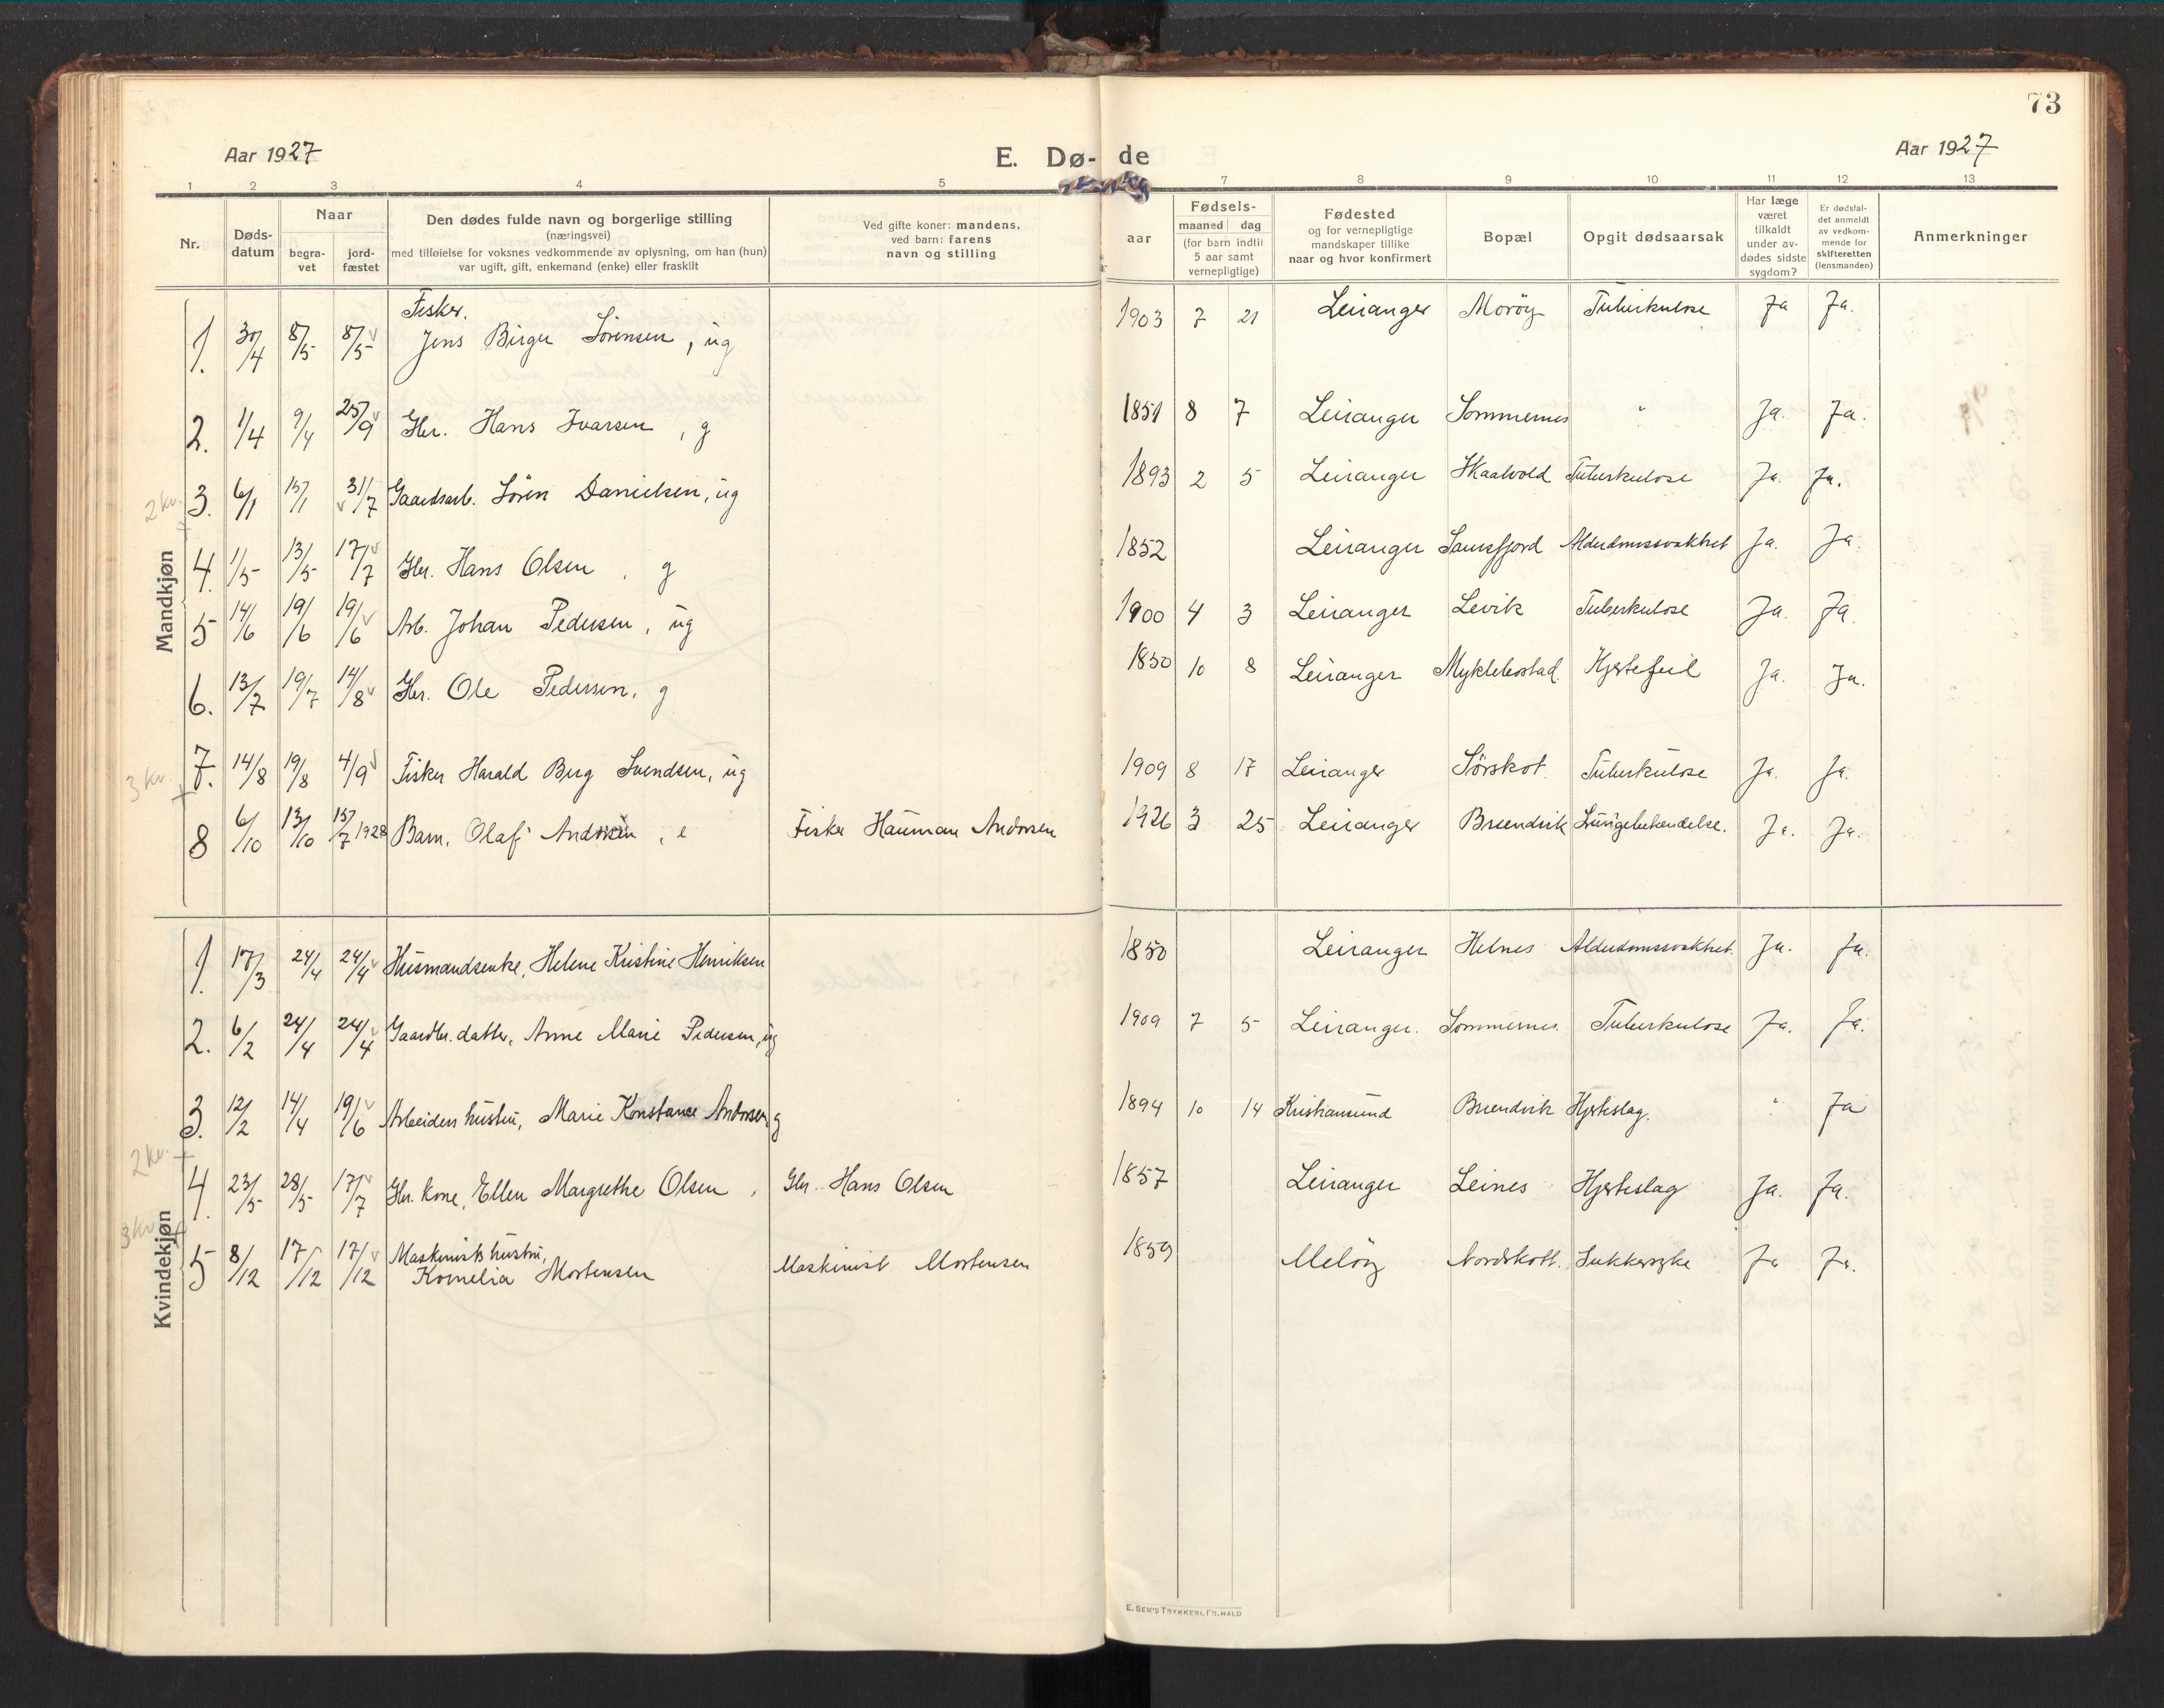 73
Aar 1927
E. Dø- de
Aar 1927
1 2 3 4 5 7 8 9 10 11 12 13
Nr.
Døds-
datum
Naar
begra-
vet
jord-
fæstet
Den dødes fulde navn og borgerlige stilling
(næringsvei)
med tilføielse for voksnes vedkommende av oplysning, om han (hun)
var ugift, gift, enkemand (enke) eller fraskilt
Ved gifte koner: mandens,
ved barn: farens
navn og stilling
Fødsels-
aar
maaned dag
(for barn indtil
5 aar samt
vernepligtige)
Fødested
og for vernepligtige
mandskaper tillike
naar og hvor konfirmert
Bopæl
Opgit dødsaarsak
Har læge
været
tilkaldt
under av-
dødes sidste
sygdom?
Er dødsfal-
det anmeldt
av vedkom-
mende for
skifteretten
(lensmanden)
Anmerkninger
Mandkjøn
Fisker.
1. 30/4 8/5 8/5 Jens Birger Sørensen, ug 1903 7 21 Leiranger Morøy Tuberkulose Ja Ja.
2. 1/4 9/4 25/9 Gbr. Hans Ivarsen, g 1851 8 7 Leiranger Sommernes " Ja. Ja.
2 kv.
3. 6/1 15/1 31/7 Gaardsarb. Sören Danielsen, ug 1893 2 5 Leiranger Skaalvold Tuberkulose Ja. Ja.
4. 1/5 13/5 17/7 Gbr. Hans Olsen, g 1852 Leiranger Laursfjord Alderdomssvakhet Ja. Ja.
5 14/6 19/6 19/6 Arb. Johan Pedersen, ug 1900 4 3 Leiranger Levik Tuberkulose Ja. Ja.
6. 13/7 19/7 14/8 Gbr. Ole Pedersen, g 1850 10 8 Leiranger Myklebostad Hjertefeil Ja. Ja.
3 kv.
7. 14/8 19/8 4/9 Fisker Harald Berg Svendsen, ug 1909 8 17 Leiranger Sörskot. Tuberkulose Ja. Ja.
8 6/10 13/10 15/7 1928 Barn, Olaf Andorsen, e Fisker Hauman Andorsen 1926 3 25 Leiranger Breendvik Lungebetændelse. Ja. Ja.
Kvindekjøn
1. 17/3 24/4 24/4 Husmandsenke, Helene Kristine Henriksen 1850 Leiranger Helnes Alderdomssvakhet. Ja. Ja.
2. 6/2 24/4 24/4 Gaardbr. datter, Anne Marie Pedersen, ug 1909 7 5 Leiranger. Sommernes. Tuberkulose Ja. Ja.
3. 12/2 14/4 19/6 Arbeiders hustru, Marie Konstance Andorsen, g 1894 10 14 Kristiansund Breendvik Hjerteslag. " Ja
2 kv.
4. 23/5 28/5 17/7 Gbr. kone, Ellen Margrethe Olsen, Gbr. Hans Olsen 1857 Leiranger Leines Hjerteslag Ja. Ja.
3 kv.
5 8/12 17/12 17/12 Maskinists hustru,
Kornelia Mortensen Maskinist Mortensen 1859 Meløy Nordskott. Sukkersyke Ja Ja.
E. SEM'S TRYKKERI, FR.HALD